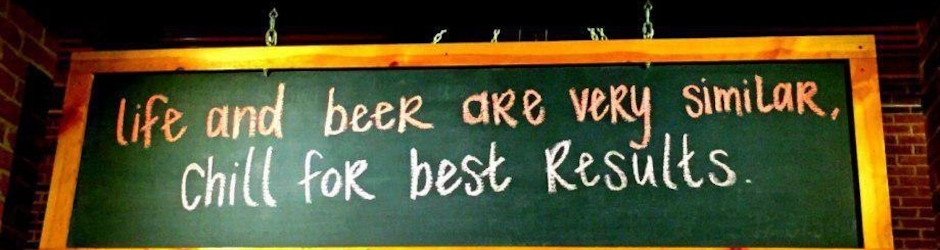 life and beer are very similar,
Chill for best Results.